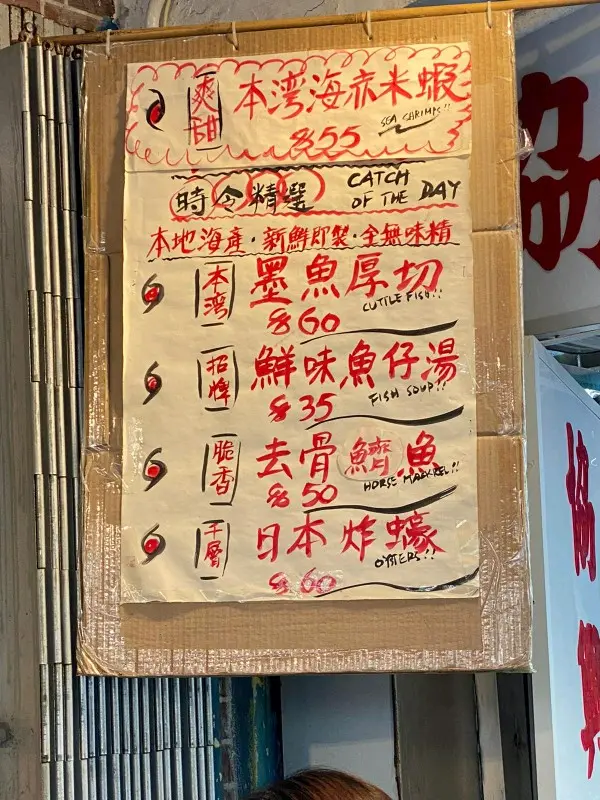 爽甜 本湾海赤米蝦
$55 SEA SHRIMPS!!
時令精選 CATCH OF THE DAY
本地海產·新鮮即製·全無味精
本湾 墨魚厚切
$60 CUTTLE FISH!!
招牌 鮮味魚仔湯
$35 FISH SOUP!!
脆香 去骨鱭魚
$50 HORSE MACKREL!!
千層 日本炸蠔
$60 OYTERS!!